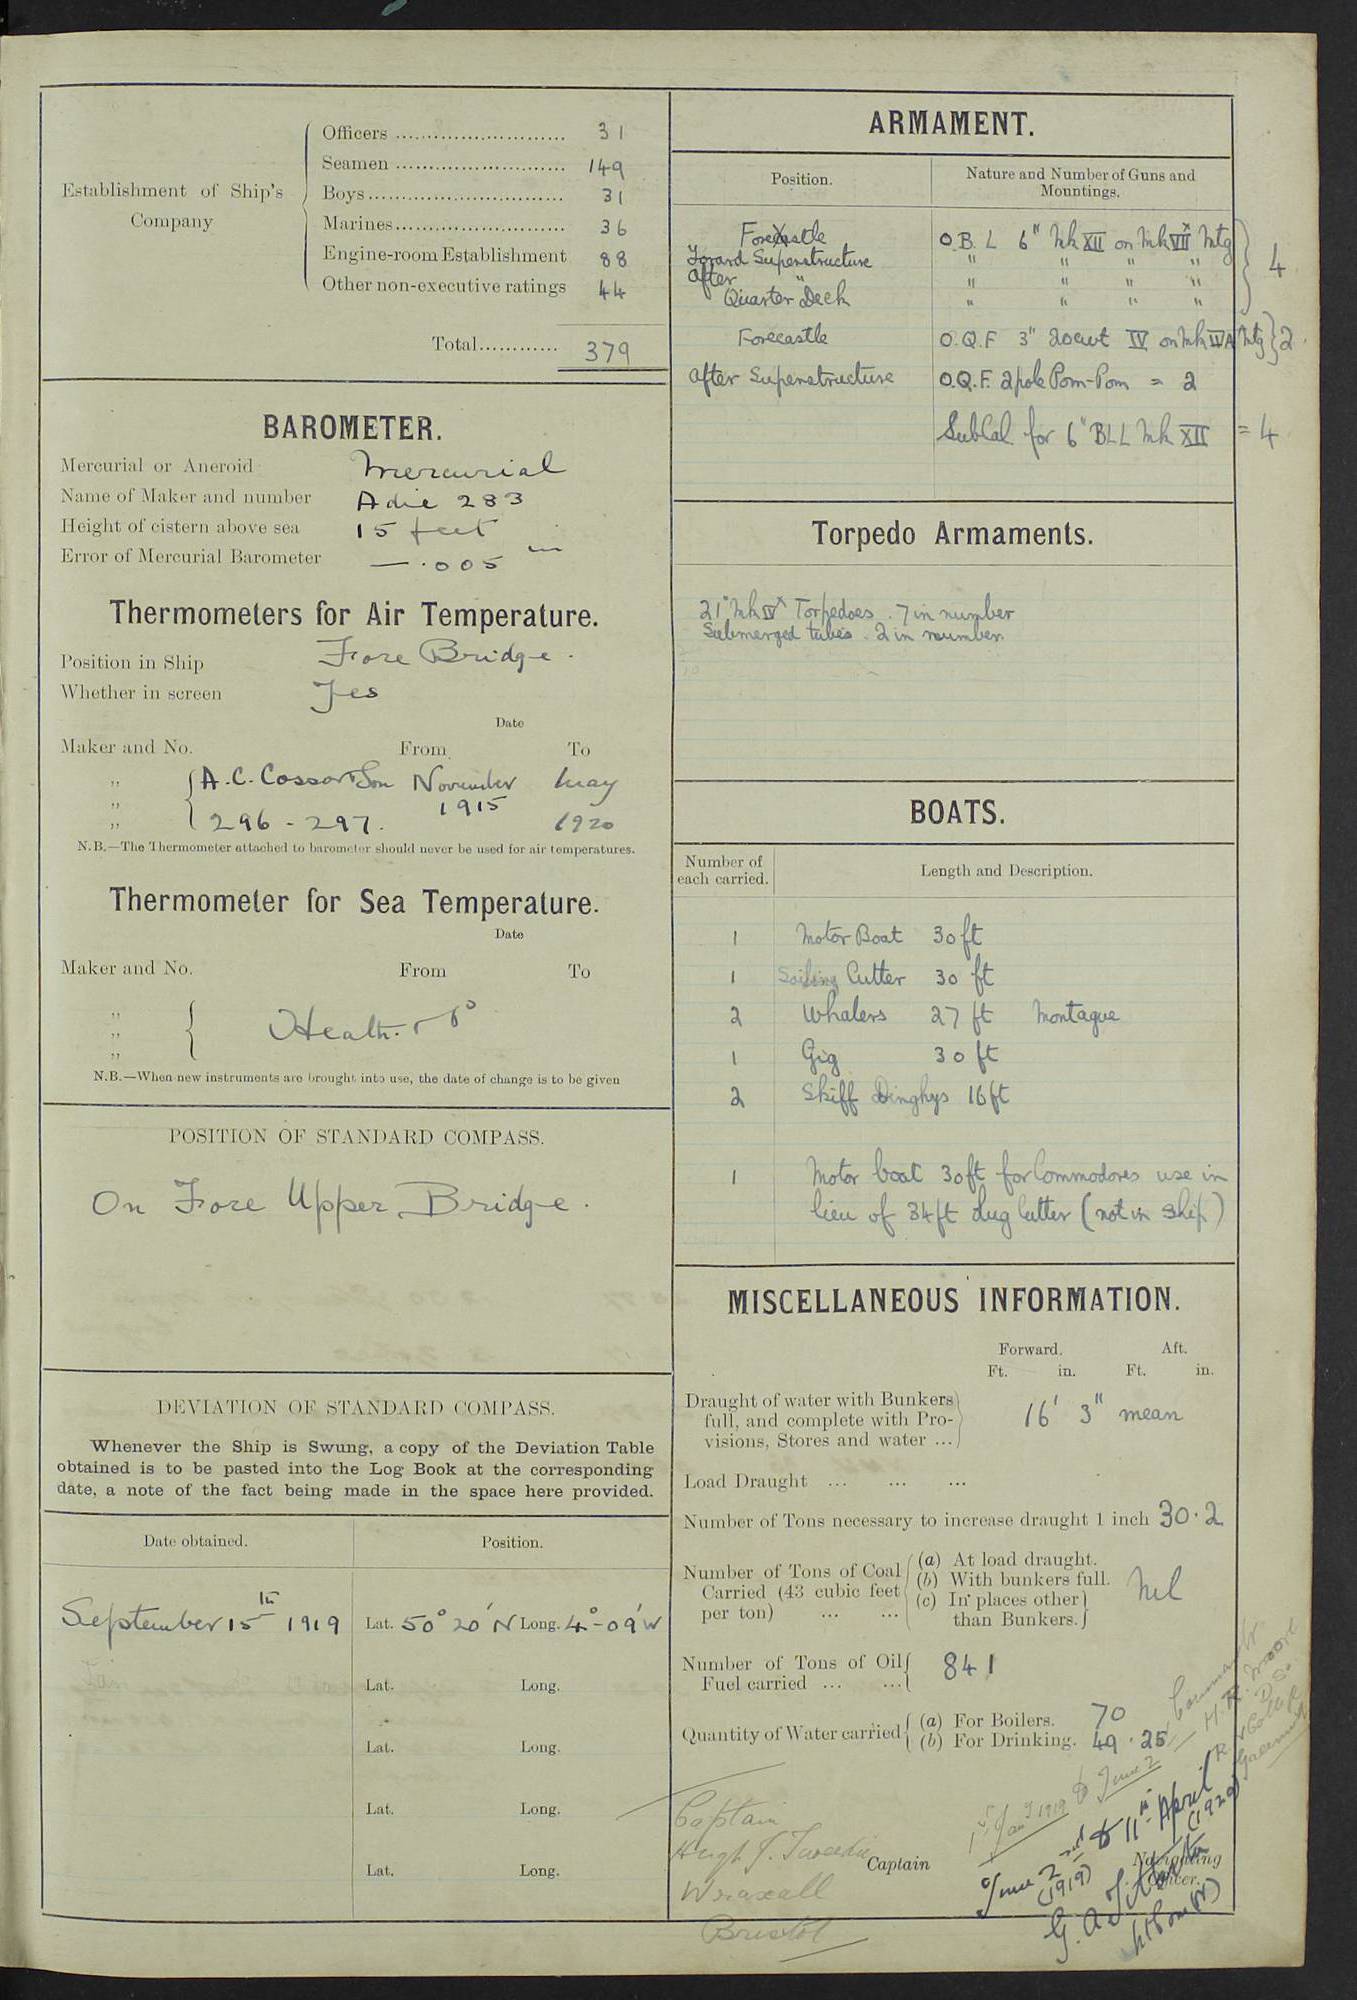 Establishment of Ship's Company
Officers ........................... 31
Seamen ........................... 149
Boys .............................. 31
Marines .......................... 36
Engine-room Establishment 88
Other non-executive ratings 44
Total ............ 379
BAROMETER.
Mercurial or Aneroid Mercurial
Name of Maker and number Adie 283
Height of cistern above sea 15 feet
Error of Mercurial Barometer — .005 in
Thermometers for Air Temperature.
Position in Ship Fore Bridge.
Whether in screen Yes
Date
Maker and No. From To
,, A.C. Cossor & Son November May
,, 1915
,, 296 - 297. 1920
N.B.—The Thermometer attached to barometer should never be used for air temperatures.
Thermometer for Sea Temperature.
Date
Maker and No. From To
,,
,, Heath.
,,
N.B.—When new instruments are brought into use, the date of change is to be given
POSITION OF STANDARD COMPASS.
On Fore Upper Bridge.
DEVIATION OF STANDARD COMPASS.
Whenever the Ship is Swung, a copy of the Deviation Table
obtained is to be pasted into the Log Book at the corresponding
date, a note of the fact being made in the space here provided.
Date obtained. Position.
September 15th 1919 Lat. 50° 20' N Long. 4°-09' W
Lat. Long.
Lat. Long.
Lat. Long.
Lat. Long.
ARMAMENT.
Position. Nature and Number of Guns and
Mountings.
Forecastle O.B.L 6" Mk XII on Mk VII* Mtg
Forard Superstructure " " " "
After " " " " " 4
Quarter Deck " " " "
Forecastle O.Q.F 3" 20cwt IV on Mk IVA Mtg } 2.
After Superstructure O.Q.F. 2 pole Pom-Pom = 2
SubCal for 6" BLL Mk XII = 4
Torpedo Armaments.
21" Mk IV* Torpedoes. 7 in number
Submerged tubes. 2 in number.
BOATS.
Number of
each carried. Length and Description.
1 Motor Boat 30 ft
1 Sailing Cutter 30 ft
2 Whalers 27 ft Montague
1 Gig 30 ft
2 Skiff Dinghys 16 ft
1 Motor boat 30ft for Commodores use in
lieu of 34ft dug Cutter (not in ship)
MISCELLANEOUS INFORMATION.
Forward. Aft.
Ft. in. Ft. in.
Draught of water with Bunkers
full, and complete with Pro-
visions, Stores and water ... 16' 3" mean
Load Draught ... ... ...
Number of Tons necessary to increase draught 1 inch 30.2
Number of Tons of Coal (a) At load draught.
Carried (43 cubic feet (b) With bunkers full. Nil
per ton) ... ... (c) In places other
than Bunkers.
Number of Tons of Oil
Fuel carried ... ... 841
Quantity of Water carried (a) For Boilers. 70
(b) For Drinking. 49.25
Captain
Hugh J. Tweedie
Wraxall
Bristol
Captain
1st Jan 1919 to June 2
Commander
H. R. Moore
D.S.O
R.N College
Greenwich
June 2nd to 11th April
(1919) (1920)
Navigating
Officer.
G. A.